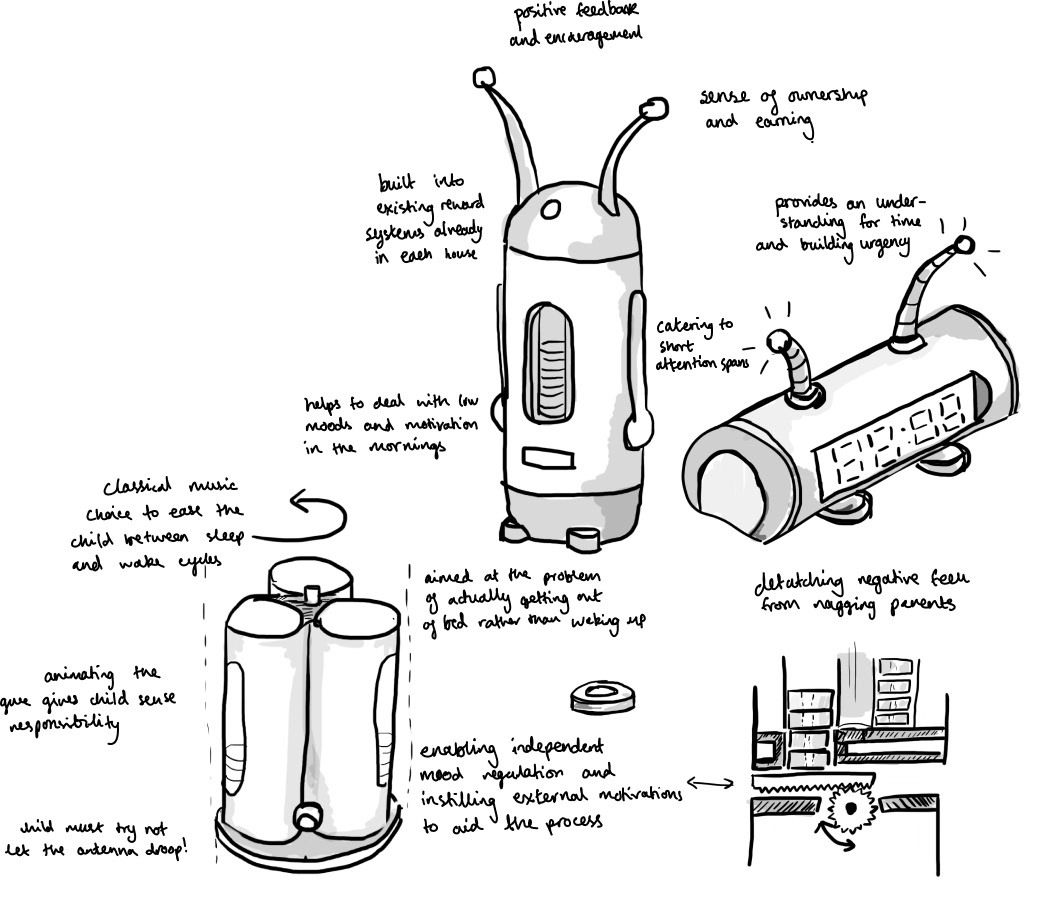 positive feedback
and encouragement
sense of ownership
and earning
built into
existing reward
systems already
in each house
provides an under-
standing for time
and building urgency
catering to
short
attention spans
helps to deal with low
moods and motivation
in the mornings
classical music
choice to ease the
child between sleep
and wake cycles
aimed at the problem
of actually getting out
of bed rather than waking up
detatching negative feel
from nagging parents
animating the
gives child sense
responsibility
enabling independent
mood regulation and
instilling external motivations
to aid the process
child must try not
let the antenna droop!